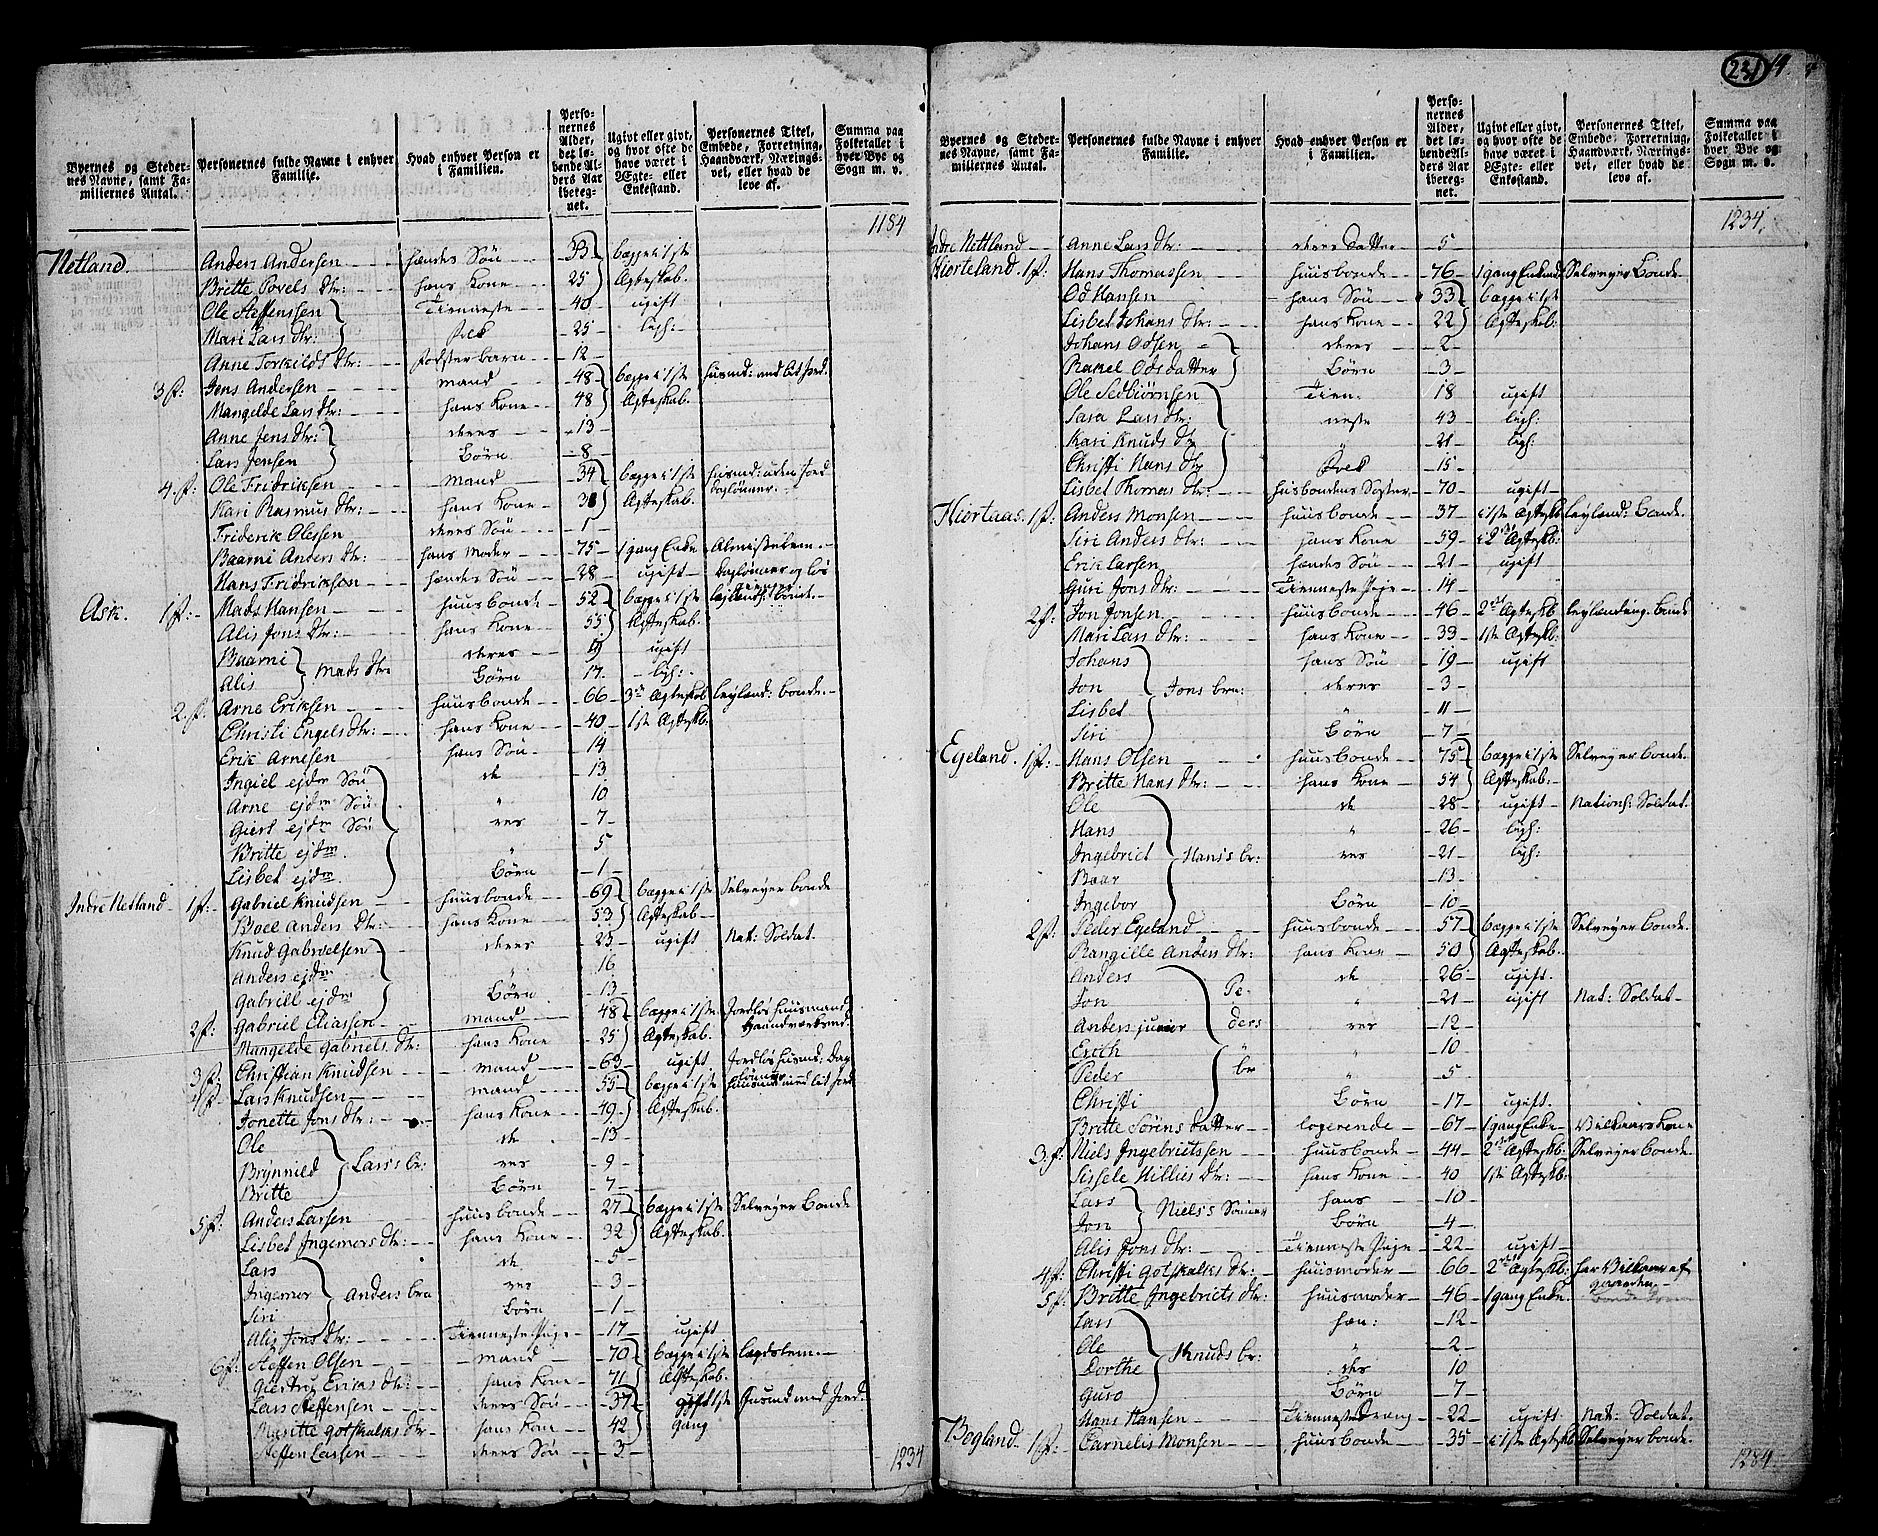 Byernes og Steder-
nes Navne, samt Fa-
miliernes Antal.
Personernes fulde Navne i enhver
Familie.
Hvad enhver Person er
i Familien.
Perso-
nernes
Alder,
det lø-
bende Al-
ders Aar
ibereg-
net.
Ugivt eller givt,
og hvor ofte de
have været i
Ægte- eller
Enkestand.
Personernes Titel,
Embede, Forretning,
Haandværk, Nærings-
vei, eller hvad de
leve af.
Summa paa
Folketallet i
hver Bye og
Sogn m. v.
1184
Netland. Anders Andersen hændes Søn 33 begge i 1ste
Britte Povels dtr: hans Kone 25 Ægteskab.
Ole Steffenssen Tienneste 40 ugift
Mari Lars dtr: folck 25 ligh:
Anne Torkilds dtr: fosterbarn 12
3 f: Jens Andersen mand 48 begge i 1ste husmd: med lit jord.
Mangelde Lars dtr: hans Kone 48 Ægteskab.
Anne Jens dtr: deres 13
Lars Jensen Børn 8
4 f: Ole Fridriksen mand 34 begge i 1ste husmd: uden Jord
Kari Rasmus dtr: hans Kone 38 Ægteskab. daglønner.
Friderik Olessen deres Søn 1
Baarni Anders dtr: hans Moder 75 1 gang Enke Almisselem.
Hans Fridriksen hændes Søn 28 ugift daglønner og løs
Ask. 1 f: Mads Hansen huusbonde 52 begge i 1ste leylend: bonde.
Alis Jons dtr: hans Kone 55 Ægteskab.
Baarni } Mads dtr deres 19 ugift
Alis Børn 17 ligh:
2 f: Arne Eriksen huusbonde 66 3die Ægteskab leylend: bonde.
Christi Engels dtr: hans Kone 40 1ste Ægteskb.
Erik Arnesen hans Søn 14
Ingiel ejdm Søn de 13
Arne ejdm Søn " 10
Giert ejdm Søn res 7
Britte ejdm. " 5
Lisbet ejdm. Børn 1
Indre Netland 1 f: Gabriel Knudsen huusbonde 69 begge i 1ste Selveyer bonde
Boel Anders dtr: hans Kone 53 Ægteskab
Knud Gabrielsen deres 23 ugift Nat: Soldat.
Anders ejdm 16
Gabriel ejdm Børn 13
2 f: Gabriel Eliassen mand 48 begge i 1ste Jordløs huusmand
Mangelde Gabriels dtr: hans Kone 25 Ægteskab. Haandværksmd.
3 f: Christian Knudsen mand 63 ugift Jordløs husmd: Dag
lønner
4 f: Lars Knudsen mand 55 begge i 1ste huusmd med lit jord
Jonette Jons dtr: hans Kone 49 Ægteskab.
Ole de 13
Brynnild } Lars's br: res 9
Britte Børn 7
5 f: Anders Larsen huusbonde 27 begge i 1ste Selveyer bonde
Lisbet Ingemors dtr: hans Kone 32 Ægteskab.
Lars de 5
Ingemor } Anders brn res 3
Siri Børn 1
Alis Jons dtr: Tienneste Pige 17 ugift
6 f: Steffen Olsen mand 70 begge i 1ste Lægdslem.
Giertru Eriks dtr: hans Kone 71 Ægteskab.
Lars Steffensen deres Søn 37 gift 1ste huusmd med Jord.
Maritte Gotskalks dtr hans Kone 42 gang
Steffen Larsen deres Søn 3
1234
231 19.
Byernes og Steder-
nes Navne, samt Fa-
miliernes Antal.
Personernes fulde Navne i enhver
Familie.
Hvad enhver Person er
i Familien.
Perso-
nernes
Alder,
det lø-
bende Al-
ders Aar
ibereg-
net.
Ugivt eller givt,
og hvor ofte de
have været i
Ægte- eller
Enkestand.
Personernes Titel,
Embede, Forretning,
Haandværk, Nærings-
vei, eller hvad de
leve af.
Summa paa
Folketallet i
hver Bye og
Sogn m. v.
1234.
Indre Nettland Anne Lars dtr: deres Datter 5
Hiorteland. 1 f: Hans Thomassen huusbonde 76 1 gang Enkemd Selveyer bonde
Od Hansen hans Søn 33 begge i 1ste
Lisbet Johans dtr: hans Kone 22 Ægteskab:
Johans Odsen deres 2
Rakel Odsdatter Børn 3
Ole Sedbiørnsen Tien. 18 ugift
Sara Lars dtr: neste 43 ligh:
Kari Knuds dtr " 21 ligh:
Christi Hans dtr folck 15
Lisbet Thomas dtr: husbondens Søster 70 ugift
Hiortaas. 1 f: Anders Monsen huusbonde 37 i 1ste Ægteskb leylend: bonde.
Siri Anders dtr: hans Kone 59 i 2det Ægteskb:
Erik Larsen hændes Søn 21 ugift
Guri Jons dtr: Tienneste Pige 14
2 f: Jon Jonsen huusbonde 46 2det Ægteskb leylending. bonde
Mari Lars dtr: hans Kone 33 1ste Ægteskb:
Johans hans Søn 19 ugift
Jon } Jons brn: deres 3
Lisbet " 11
Siri Børn 7
Egeland. 1 f: Hans Olsen huusbonde 75 begge i 1ste Selveyer bonde.
Britte Hans dtr: hans Kone 54 Ægteskab:
Ole de 28 ugift Nationl: Soldat.
Hans " 26 ligh:
Ingebriet } Hans's br: res 21 ligh:
Baar 13
Ingebor Børn 10
2 f: Peder Egeland huusbonde 57 begge i 1ste Selveyer bonde.
Rangille Anders dtr: hans Kone 50 Ægteskab.
Anders de 26 ugift.
Jon Pe- " 21 ugift Nat: Soldat
Anders junior ders res 12
Erich " 10
Peder br " 5
Christi Børn 17 ugift.
Britte Sørens datter logerende 67 1 gang Enke Vilkaars Kone
3 f. Niels Ingebrietssen huusbonde 44 2det Ægteskb. Selveyer bonde.
Sissele Nillies dtr: hans Kone 40 1ste Ægteskb.
Lars } Niels's Sønner hans 10
Jon Børn 4
Alis Jons dtr: Tienneste Pige 22 ugift
4 f: Christi Gotskalks dtr: huusmoder 66 2det Ægteskb: har Vilkaar af
gaarden
5 f: Britte Ingebriets dtr: huusmoder 46 1 gang Enke.
Lars hæn: 12
Ole " 2
Dorthe } Knuds br: des 10
Guro Børn 7
Hans Hansen Tienneste Dreng 22 ugift Nat: Soldat.
Begland 1 f: Carnelis Monsen huusbonde 35 i 1ste Ægteskb Selveyer bonde.
1284